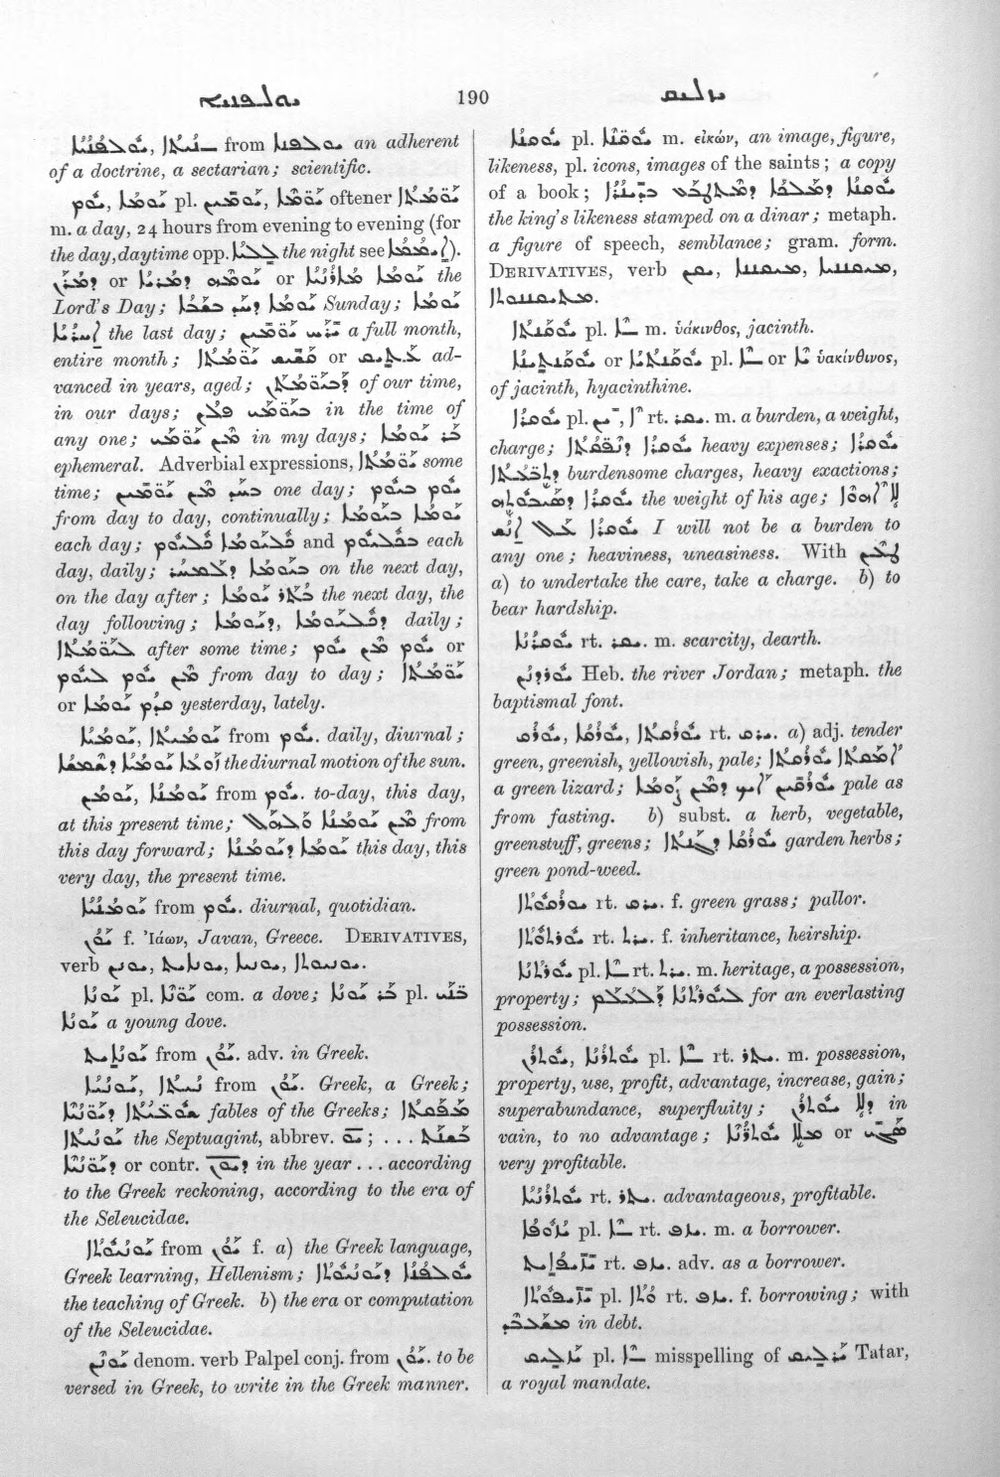 ܝܘܠܦܢܝܐ 190 ܝܬܠܝܩ
ܝܘܠܦܢܝܐ, ܢܝܬܐ from ܝܘܠܦܢܐ an adherent
of a doctrine, a sectarian; scientific.
ܝܘܡ, ܝܘܡܐ pl. ܝܘܡܝܢ, ܝܘܡܐ oftener ܝܘܡܬܐ
m. a day, 24 hours from evening to evening (for
the day, daytime opp. ܠܠܝܐ the night see ܐܝܡܡܐ).
ܝܘܡܐ ܡܪܢܝܐ or ܝܘܡܗ ܕܡܪܝܐ or ܕܡܪܢ the
Lord's Day; ܝܘܡܐ ܕܚܕ ܒܫܒܐ Sunday; ܝܘܡܐ
ܐܚܪܝܐ the last day; ܝܪܚ ܝܘܡܝܢ a full month,
entire month; ܝܘܡܬܐ or ܥܬܝܩ ad-
vanced in years, aged; ܕܒܝܘܡܬܢ of our time,
in our days; ܒܝܘܡܝ ܦܠܢ in the time of
any one; ܡܢ ܝܘܡܝ in my days; ܒܪ ܝܘܡܐ
ephemeral. Adverbial expressions, ܝܘܡܬܐ some
time; ܒܚܕ ܡܢ ܝܘܡܝܢ one day; ܝܘܡ ܒܝܘܡ
from day to day, continually; ܝܘܡܐ ܒܝܘܡܐ
each day; ܟܠܝܘܡܐ ܟܠܝܘܡ and ܒܟܠܝܘܡ each
day, daily; ܒܝܘܡܐ ܕܠܡܚܪ on the next day,
on the day after; ܝܘܡܐ ܒܬܪ the next day, the
day following; ܕܝܘܡܐ, ܕܟܠܝܘܡܐ daily;
ܠܝܘܡܬܐ after some time; ܝܘܡ ܡܢ ܝܘܡ or
ܝܘܡ ܡܢ ܝܘܡ ܠܝܘܡ from day to day; ܝܘܡܬܐ
or ܩܕܡ ܝܘܡܐ yesterday, lately.
ܝܘܡܝܐ, ܝܘܡܝܬܐ from ܝܘܡ. daily, diurnal;
ܙܘܥܐ ܝܘܡܝܐ ܕܫܡܫܐ the diurnal motion of the sun.
ܝܘܡܢ, ܝܘܡܢܐ from ܝܘܡ. to-day, this day,
at this present time; ܡܢ ܝܘܡܢܐ ܘܠܗܠ from
this day forward; ܝܘܡܐ ܕܝܘܡܢܐ this day, this
very day, the present time.
ܝܘܡܢܝܐ from ܝܘܡ. diurnal, quotidian.
ܝܘܢ f. Ἰάων, Javan, Greece. DERIVATIVES,
verb ܝܘܢܢ, ܝܘܢܐܝܬ, ܝܘܢܝܐ, ܝܘܢܝܘܬܐ.
ܝܘܢܐ pl. ܝܘܢܐ com. a dove; ܒܪ ܝܘܢܐ pl. ܒܢܝ
ܝܘܢܐ a young dove.
ܝܘܢܐܝܬ from ܝܘܢ. adv. in Greek.
ܝܘܢܝܐ, ܢܝܬܐ from ܝܘܢ. Greek, a Greek;
ܫܘܥܝܬܐ ܕܝܘܢܝܐ fables of the Greeks; ܡܦܩܬܐ
ܝܘܢܝܬܐ the Septuagint, abbrev. ܝܘ; ... ܒܫܢܬ
ܕܝܘܢܝܐ or contr. ܕܝܘܢ in the year ... according
to the Greek reckoning, according to the era of
the Seleucidae.
ܝܘܢܝܘܬܐ from ܝܘܢ f. a) the Greek language,
Greek learning, Hellenism; ܝܘܠܦܢܐ ܕܝܘܢܝܘܬܐ
the teaching of Greek. b) the era or computation
of the Seleucidae.
ܝܘܢܢ denom. verb Palpel conj. from ܝܘܢ. to be
versed in Greek, to write in the Greek manner.
ܝܘܩܢܐ pl. ܝܘܩܢܐ m. εἰκών, an image, figure,
likeness, pl. icons, images of the saints; a copy
of a book; ܝܘܩܢܐ ܕܡܠܟܐ ܕܡܬܛܒܥ ܒܕܝܢܪܐ
the king's likeness stamped on a dinar; metaph.
a figure of speech, semblance; gram. form.
DERIVATIVES, verb ܝܩܢ, ܡܝܩܢܢܐ, ܡܝܩܢܢܝܐ,
ܡܬܝܩܢܢܘܬܐ.
ܝܘܩܢܬܐ pl. ܐ m. ὑάκινθος, jacinth.
ܝܘܩܢܬܝܢܐ or ܝܘܩܢܬܢܝܐ pl. ܐ or ܝܐ ὑακίνθινος,
of jacinth, hyacinthine.
ܝܘܩܪܐ pl. ܝܢ, ܐ rt. ܝܩܪ. m. a burden, a weight,
charge; ܝܘܩܪܐ ܕܢܦܩܬܐ heavy expenses; ܝܘܩܪܐ
burdensome charges, heavy exactions;
ܝܘܩܪܐ ܕܣܝܒܘܬܗ the weight of his age; ܠܐ ܐܗܘܐ
ܝܘܩܪܐ ܥܠ ܐܢܫ I will not be a burden to
any one; heaviness, uneasiness. With ܛܥܢ
a) to undertake the care, take a charge. b) to
bear hardship.
ܝܘܩܪܢܐ rt. ܝܩܪ. m. scarcity, dearth.
ܝܘܪܕܢܢ Heb. the river Jordan; metaph. the
baptismal font.
ܝܘܪܩ, ܝܘܪܩܐ, ܝܘܪܩܬܐ rt. ܝܪܩ. a) adj. tender
green, greenish, yellowish, pale; ܐܡܩܬܐ ܝܘܪܩܬܐ
a green lizard; ܝܘܪܩܝܢ ܐܝܟ ܕܡܢ ܨܘܡܐ pale as
from fasting. b) subst. a herb, vegetable,
greenstuff, greens; ܝܘܪܩܐ ܕܓܢܬܐ garden herbs;
green pond-weed.
ܝܘܪܩܘܬܐ rt. ܝܪܩ. f. green grass; pallor.
ܝܘܪܬܘܬܐ rt. ܝܪܬ. f. inheritance, heirship.
ܝܘܪܬܢܐ pl. ܐ rt. ܝܪܬ. m. heritage, a possession,
property; ܠܝܘܪܬܢܐ ܕܠܥܠܡ for an everlasting
possession.
ܝܘܬܪܢ, ܝܘܬܪܢܐ pl. ܐ rt. ܝܬܪ. m. possession,
property, use, profit, advantage, increase, gain;
superabundance, superfluity; ܕܠܐ ܝܘܬܪܢ in
vain, to no advantage; ܡܠܐ ܝܘܬܪܢܐ or ܣܓܝ
very profitable.
ܝܘܬܪܢܝܐ rt. ܝܬܪ. advantageous, profitable.
ܝܙܘܦܐ pl. ܐ rt. ܝܙܦ. m. a borrower.
ܝܙܝܦܐܝܬ rt. ܝܙܦ. adv. as a borrower.
ܝܙܝܦܘܬܐ pl. ܘܬܐ rt. ܝܙܦ. f. borrowing; with
in debt.
ܝܙܠܝܩ pl. ܐ misspelling of ܝܪܠܝܩ Tatar,
a royal mandate.